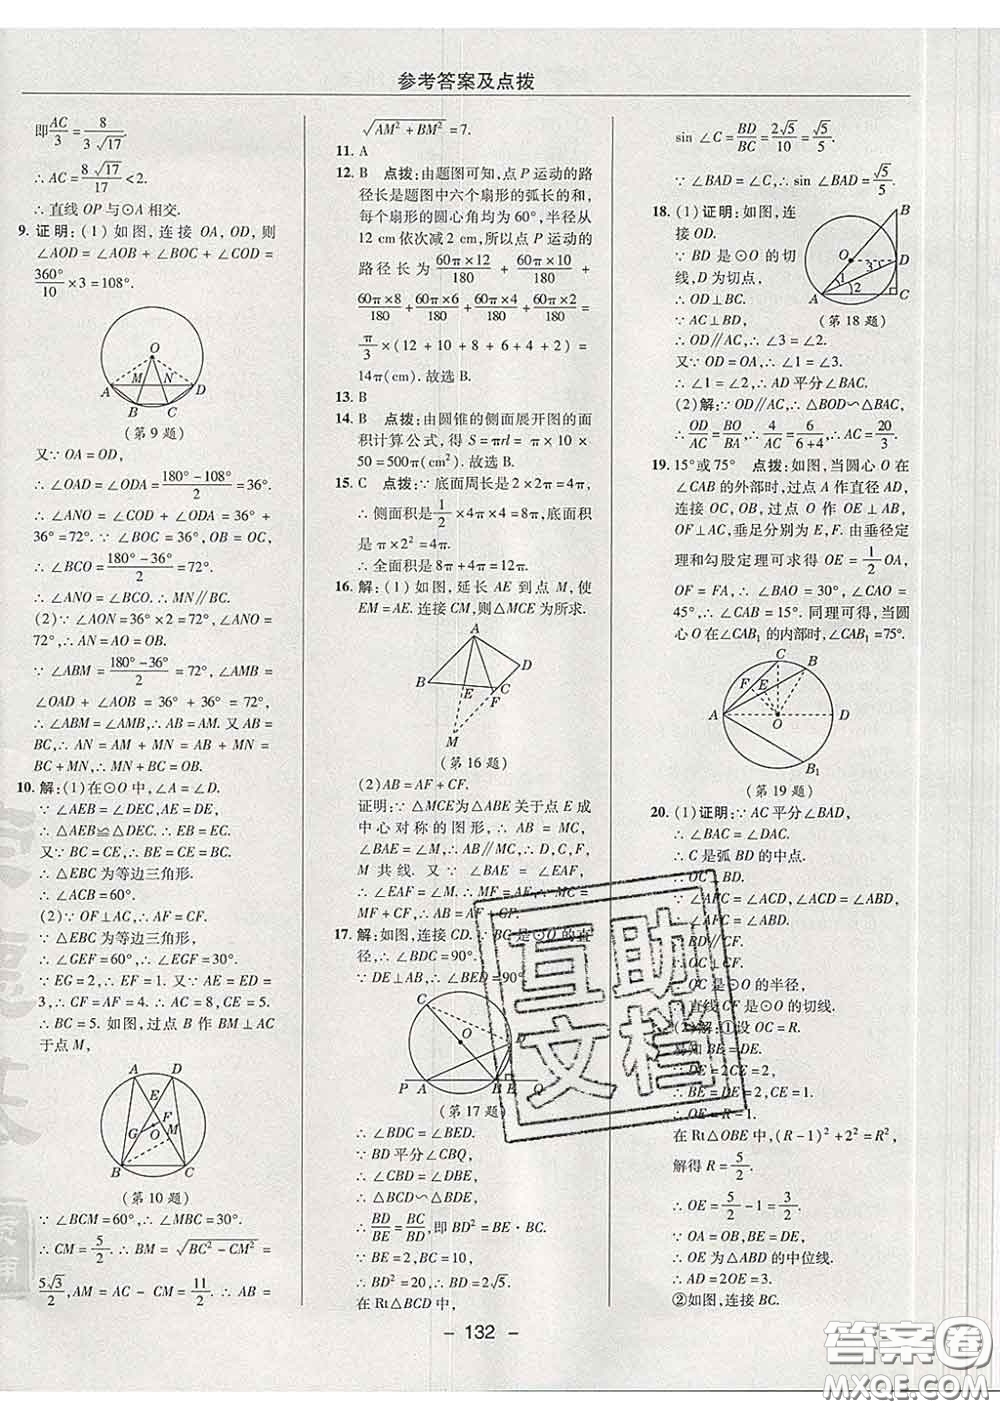 参考答案及点拨
即AC/3=8/(3√17).
∴AC=8√17/17<2.
∴直线 OP 与⊙A 相交.
9. 证明:(1)如图,连接 OA,OD,则
∠AOD = ∠AOB + ∠BOC + ∠COD =
360°/10×3=108°.
O
M N
A D
B C
(第 9 题)
又∵OA=OD,
∴∠OAD=∠ODA=(180°-108°)/2=36°.
∴∠ANO=∠COD+∠ODA=36°+
36°=72°.∵∠BOC=36°,OB=OC,
∴∠BCO=(180°-36°)/2=72°.
∴∠ANO=∠BCO.∴MN∥BC.
(2)∵∠AON=36°×2=72°,∠ANO=
72°,∴AN=AO=OB.
∵∠ABM=(180°-36°)/2=72°,∠AMB=
∠OAD+∠AOB=36°+36°=72°,
∴∠ABM=∠AMB,∴AB=AM.又AB=
BC,∴AN=AM+MN=AB+MN=
BC+MN.
10. 解:(1)在⊙O 中,∠A=∠D.
∵∠AEB=∠DEC,AE=DE,
∴△AEB≌△DEC.∴EB=EC.
又∵BC=CE,∴BE=CE=BC.
∴△EBC 为等边三角形.
∴∠ACB=60°.
(2)∵OF⊥AC,∴AF=CF.
∵△EBC 为等边三角形,
∴∠GEF=60°.∴∠EGF=30°.
∵EG=2,∴EF=1.又∵AE=ED=
3,∴CF=AF=4.∴AC=8,EC=5.
∴BC=5.如图,过点 B 作 BM⊥AC
于点 M,
A D
E
F
G O M
B C
(第 10 题)
∵∠BCM=60°,∴∠MBC=30°.
∴CM=5/2.∴BM=√(BC²-CM²)=
5√3/2,AM=AC-CM=11/2.∴AB=
√(AM²+BM²)=7.
11. A
12. B 点拨:由题图可知,点 P 运动的路
径长是题图中六个扇形的弧长的和,
每个扇形的圆心角均为 60°,半径从
12 cm 依次减 2 cm,所以点 P 运动的
路径长为 60π×12/180 + 60π×10/180 +
60π×8/180+60π×6/180+60π×4/180+60π×2/180=
π/3×(12+10+8+6+4+2)=
14π(cm).故选 B.
13. B
14. B 点拨:由圆锥的侧面展开图的面
积计算公式,得 S=πrl=π×10×
50=500π(cm²).故选 B.
15. C 点拨:∵底面周长是 2×2π=4π,
∴侧面积是1/2×4π×4=8π,底面积
是 π×2²=4π.
∴全面积是 8π+4π=12π.
16. 解:(1)如图,延长 AE 到点 M,使
EM=AE.连接 CM,则△MCE 为所求.
A
B D
E F C
M
(第 16 题)
(2)AB=AF+CF.
证明:∵△MCE与△ABE 关于点 E 成
中心对称的图形,∴AB=MC,
∠BAE=∠M.∴AB∥MC,∴D,C,F,
M 共线.又∵∠BAE=∠EAF,
∴∠EAF=∠M.∴MF=AF,∵MC=
MF+CF,∴AB=AF+CF.
17. 解:如图,连接 CD.∵BC是⊙O 的直
径,∴∠BDC=90°.
∵DE⊥AB,∴∠BED=90°
C
O
P A B E Q
(第 17 题)
∴∠BDC=∠BED.
∵BD 平分∠CBQ,
∴∠CBD=∠DBE.
∴△BCD∽△BDE,
∴BD/BE=BC/BD,即 BD²=BC·BE.
∵BE=2,BC=10,
∴BD²=20,∴BD=2√5.
在 Rt△BCD 中,
sin ∠C=BD/BC=2√5/10=√5/5.
∵∠BAD=∠C,∴sin ∠BAD=√5/5.
18. (1)证明:如图,连
接 OD.
∵BD 是⊙O 的切
线,D 为切点,
∴OD⊥BC.
∵AC⊥BD,
B
O D
3
1
2
A C
(第 18 题)
∴OD∥AC,∴∠3=∠2.
又∵OD=OA,∴∠1=∠3.
∴∠1=∠2,∴AD 平分∠BAC.
(2)解:∵OD∥AC,∴△BOD∽△BAC,
∴OD/AC=BO/BA,∴4/AC=6/(6+4),∴AC=20/3.
19. 15°或75° 点拨:如图,当圆心 O 在
∠CAB 的外部时,过点 A 作直径 AD,
连接 OC,OB,过点 O 作 OE⊥AB,
OF⊥AC,垂足分别为 E,F.由垂径定
理和勾股定理可求得 OE=1/2OA,
OF=FA,∴∠BAO=30°,∠CAO=
45°,∴∠CAB=15°.同理可得,当圆
心 O 在∠CAB₁的内部时,∠CAB₁=75°.
C B
F E
A O D
B₁
(第 19 题)
20. (1)证明:∵AC平分∠BAD,
∴∠BAC=∠DAC.
∴C 是弧 BD 的中点.
∴OC⊥BD.
∵∠BCF=∠ACD,∠ACD=∠ABD,
∴∠BCF=∠ABD.
∴BD∥CF.∴OC⊥CF.
∵OC 是⊙O 的半径,
∴直线 CF 是⊙O 的切线.
(2)解:①设 OC=R.
易知 BE=DE.
∵DE=2CE=2,CE=1.
∴BE=DE=2,CE=1.
∴OE=R-1.
在 Rt△OBE 中,(R-1)²+2²=R²,
解得 R=5/2.
∴OE=5/2-1=3/2.
∵OA=OB,BE=DE,
∴OE 为△ABD 的中位线.
∴AD=2OE=3.
②如图,连接 BC.
互助文档
- 132 -
答案圈
MXQE.COM